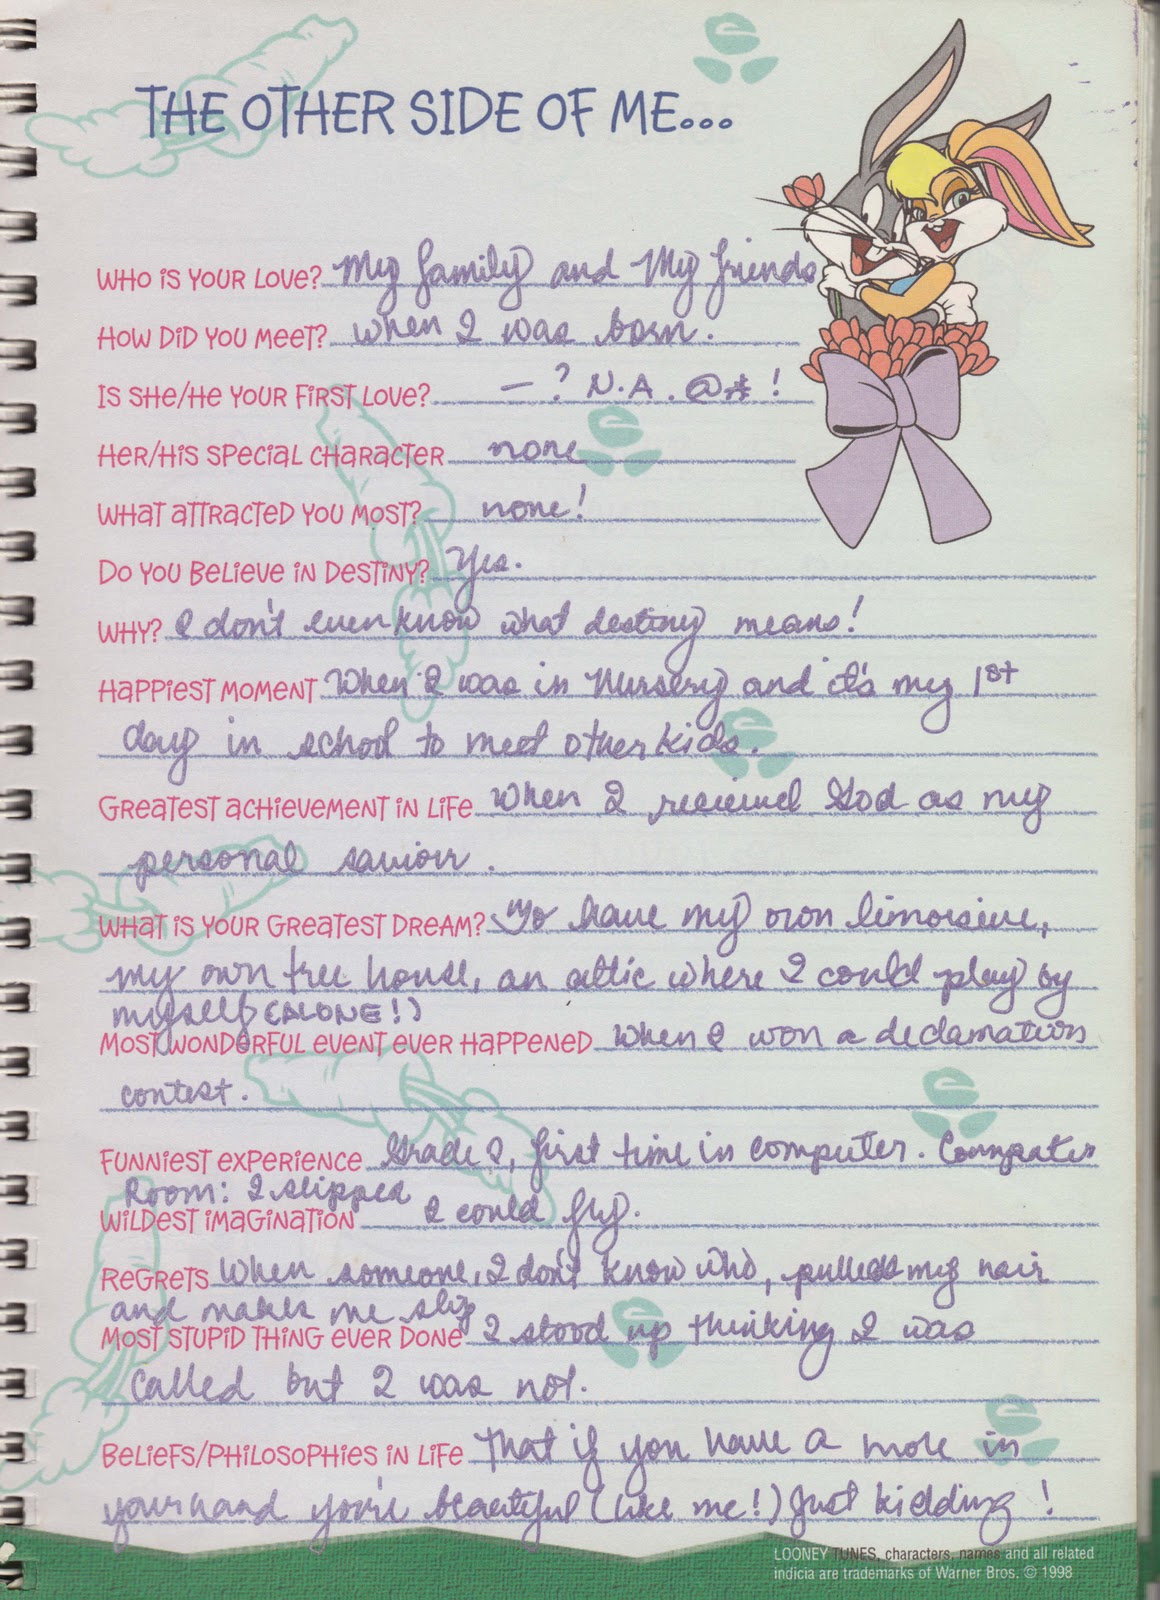 THE OTHER SIDE OF ME...
WHO IS YOUR LOVE? My family and My friends
HOW DID YOU MEET? when I was born.
IS SHE/HE YOUR FIRST LOVE? — ? N.A. @* !
HER/HIS SPECIAL CHARACTER none
WHAT ATTRACTED YOU MOST? none!
DO YOU BELIEVE IN DESTINY? Yes.
WHY? I don't even know what destiny means!
HAPPIEST MOMENT When I was in Nursery and it's my 1st
day in school to meet other kids.
GREATEST ACHIEVEMENT IN LIFE When I received God as my
personal saviour.
WHAT IS YOUR GREATEST DREAM? To have my own limosine,
my own tree house, an attic where I could play by
myself (ALONE!)
MOST WONDERFUL EVENT EVER HAPPENED When I won a declamation
contest.
FUNNIEST EXPERIENCE Grade 2, first time in computer. Computer
Room: I slipped
WILDEST IMAGINATION I could fly.
REGRETS When someone, I don't know who, pulled my hair
and makes me slip
MOST STUPID THING EVER DONE I stood up thinking I was
called but I was not.
BELIEFS/PHILOSOPHIES IN LIFE That if you have a mole in
your hand you're beautiful (like me!) Just kidding!
LOONEY TUNES, characters, names and all related
indicia are trademarks of Warner Bros. © 1998